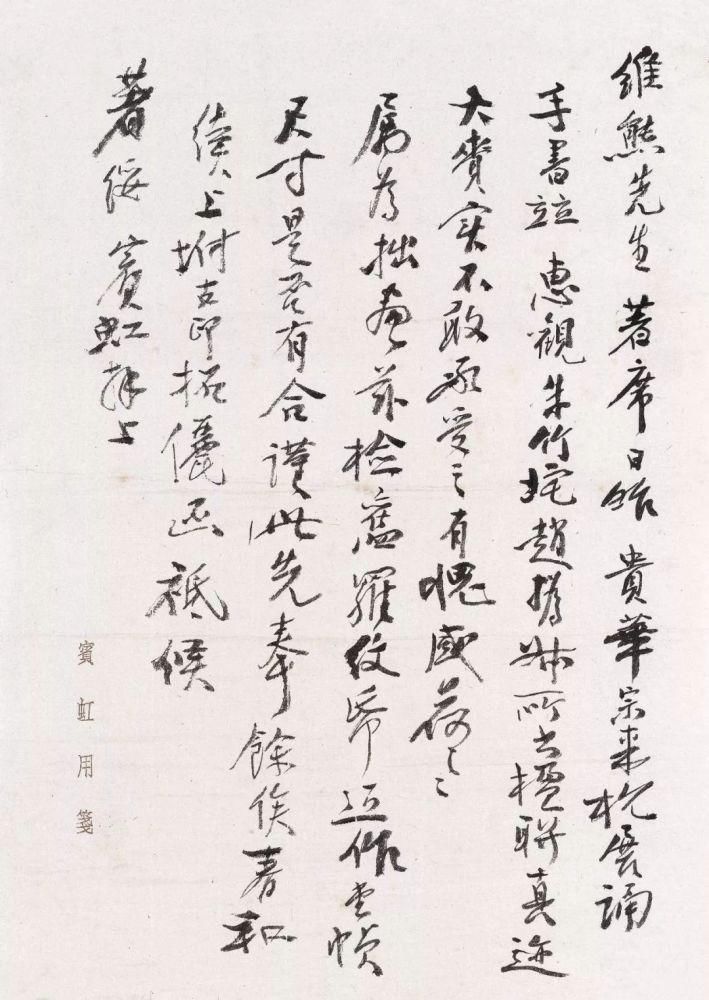 維熊先生著席日條貴華宗來杭展誦
手書竝惠觀朱竹垞趙撝叔所書楹聯真迹
大賚實不敢承受之有愧感荷々
屬為拙畫茲檢舊羅紋帋近作堂幀
尺寸是否有合謹此先奉餘俟春和
續上坿古印拓儷函祗候
著綏賓虹拜上
賓虹用箋